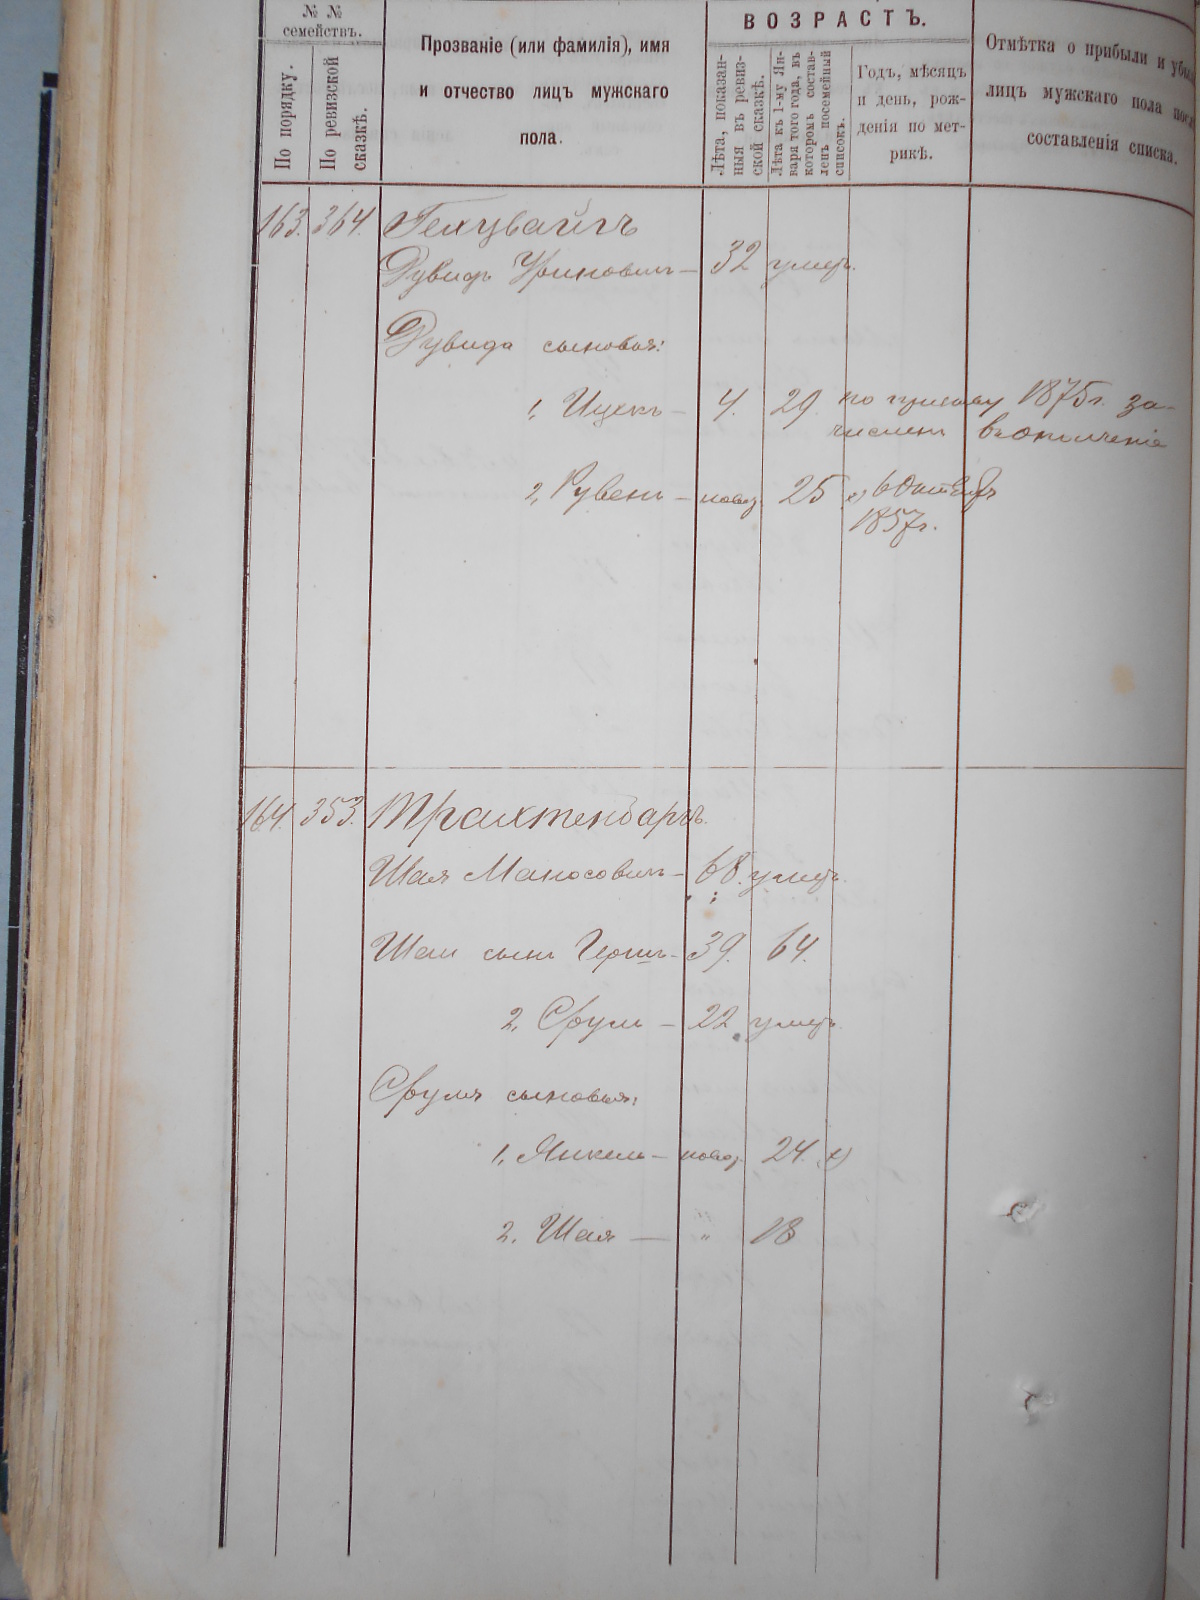 № №
семействъ.
По порядку.
По ревизской
сказкѣ.
Прозваніе (или фамилія), имя
и отчество лицъ мужскаго
пола.
ВОЗРАСТЪ.
Лѣта, показан-
ныя въ ревиз-
ской сказкѣ.
Лѣта къ 1-му Ян-
варя того года, въ
которомъ состав-
ленъ посемейный
списокъ.
Годъ, мѣсяцъ
и день, рож-
денія по мет-
рикѣ.
Отмѣтка о прибыли и убы
лицъ мужскаго пола посл
составленія списка.
163. 364.
Дувидъ – 32 умеръ.
Дувида сыновья:
1, Ицекъ – 4. 29. по призыву 1875 г. за-
численъ въ ополченіе
2, Рувенъ – новор. 25 х) 6 Октября
1857 г.
164. 353. Трахтенбаргъ.
Шая Маносовичъ – 68. умеръ.
Шаи сынъ Гершъ – 39. 64.
2, Сруль – 22 умеръ.
Сруля сыновья:
1, Янкель – новор. 24. х)
2. Шая — " 18